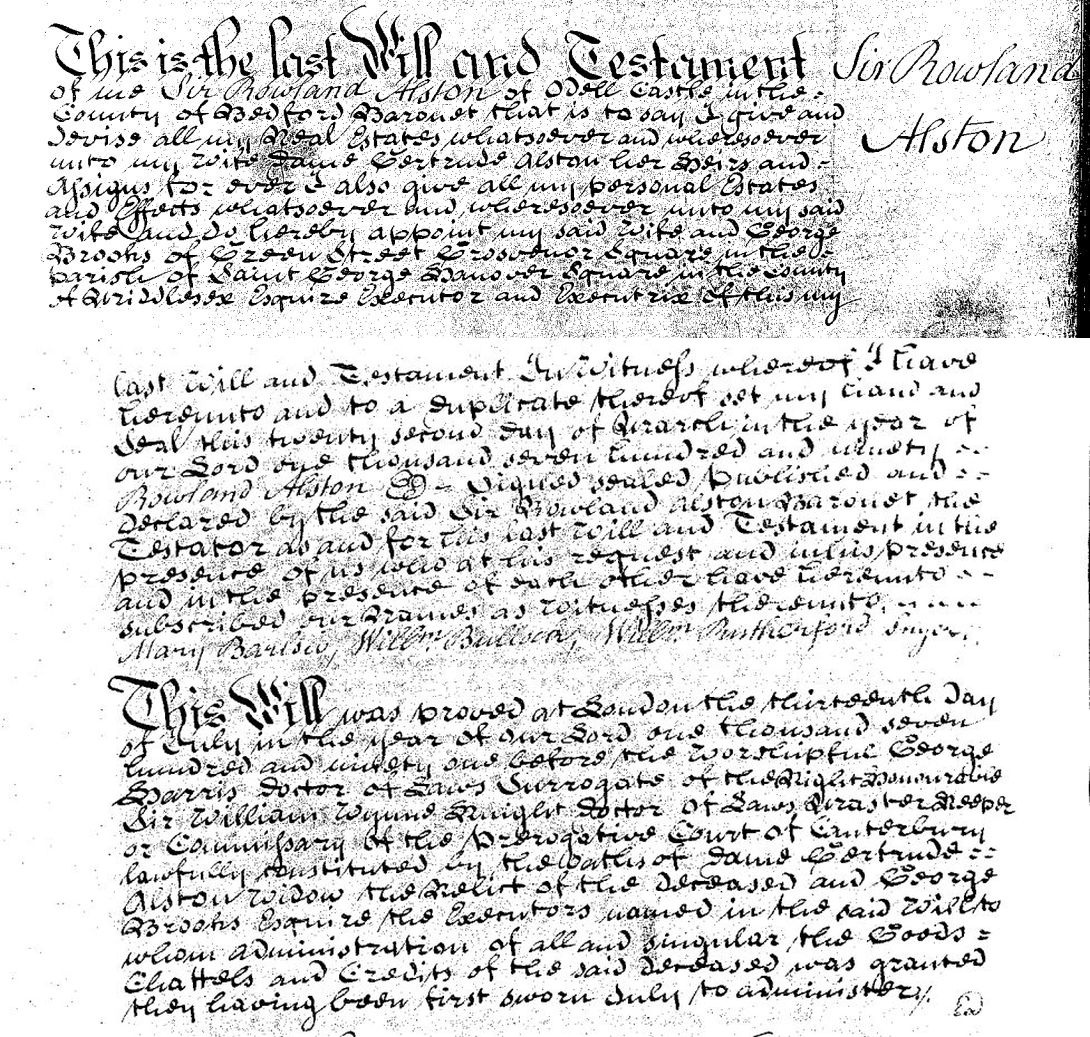 This is the last Will and Testament
Sir Rowland
Alston
of me Sir Rowland Alston of Odell Castle in the
County of Bedford Baronet that is to say I give and
devise all my Real Estates whatsoever and wheresoever
unto my Wife Dame Gertrude Alston her Heirs and
Assigns for ever I also give all my personal Estates
and Effects whatsoever and wheresoever unto my said
Wife and do hereby appoint my said Wife and George
Brooks of Green Street Grosvenor Square in the
parish of Saint George Hanover Square in the County
of Middlesex Esquire Executor and Executrix of this my
last Will and Testament In Witness whereof I have
hereunto and to a duplicate thereof set my hand and
Seal this twenty second day of March in the year of
our Lord one thousand seven hundred and ninety
Rowland Alston Signed sealed published and
declared by the said Sir Rowland Alston Baronet the
Testator as and for his last Will and Testament in the
presence of us who at his request and in his presence
and in the presence of each other have hereunto
subscribed our Names as Witnesses thereunto
Mary Barlow, Willm. Bullock, Willm. Rutherford
This Will was proved at London the thirteenth Day
of July in the year of our Lord one thousand seven
hundred and ninety one before the Worshipful George
Harris Doctor of Laws Surrogate of the Right Honourable
Sir William Wynne Knight Doctor of Laws Master Keeper
or Commissary of the Prerogative Court of Canterbury
lawfully constituted by the Oaths of Dame Gertrude
Alston Widow the Relict of the deceased and George
Brooks Esquire the Executors named in the said Will to
whom administration of all and singular the Goods
Chattels and Credits of the said deceased was granted
they having been first sworn duly to administer.